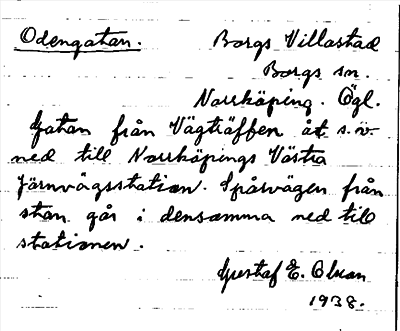 Odengatan. Borgs Villastad
Borgs sn.
Norrköping. Ögl.
Gatan från Vägträffen åt s.v.
ned till Norrköpings Västra
Järnvägsstation. Spårvägen från
stan går i densamma ned till
stationen.
Gustaf E. Olsson
1938.